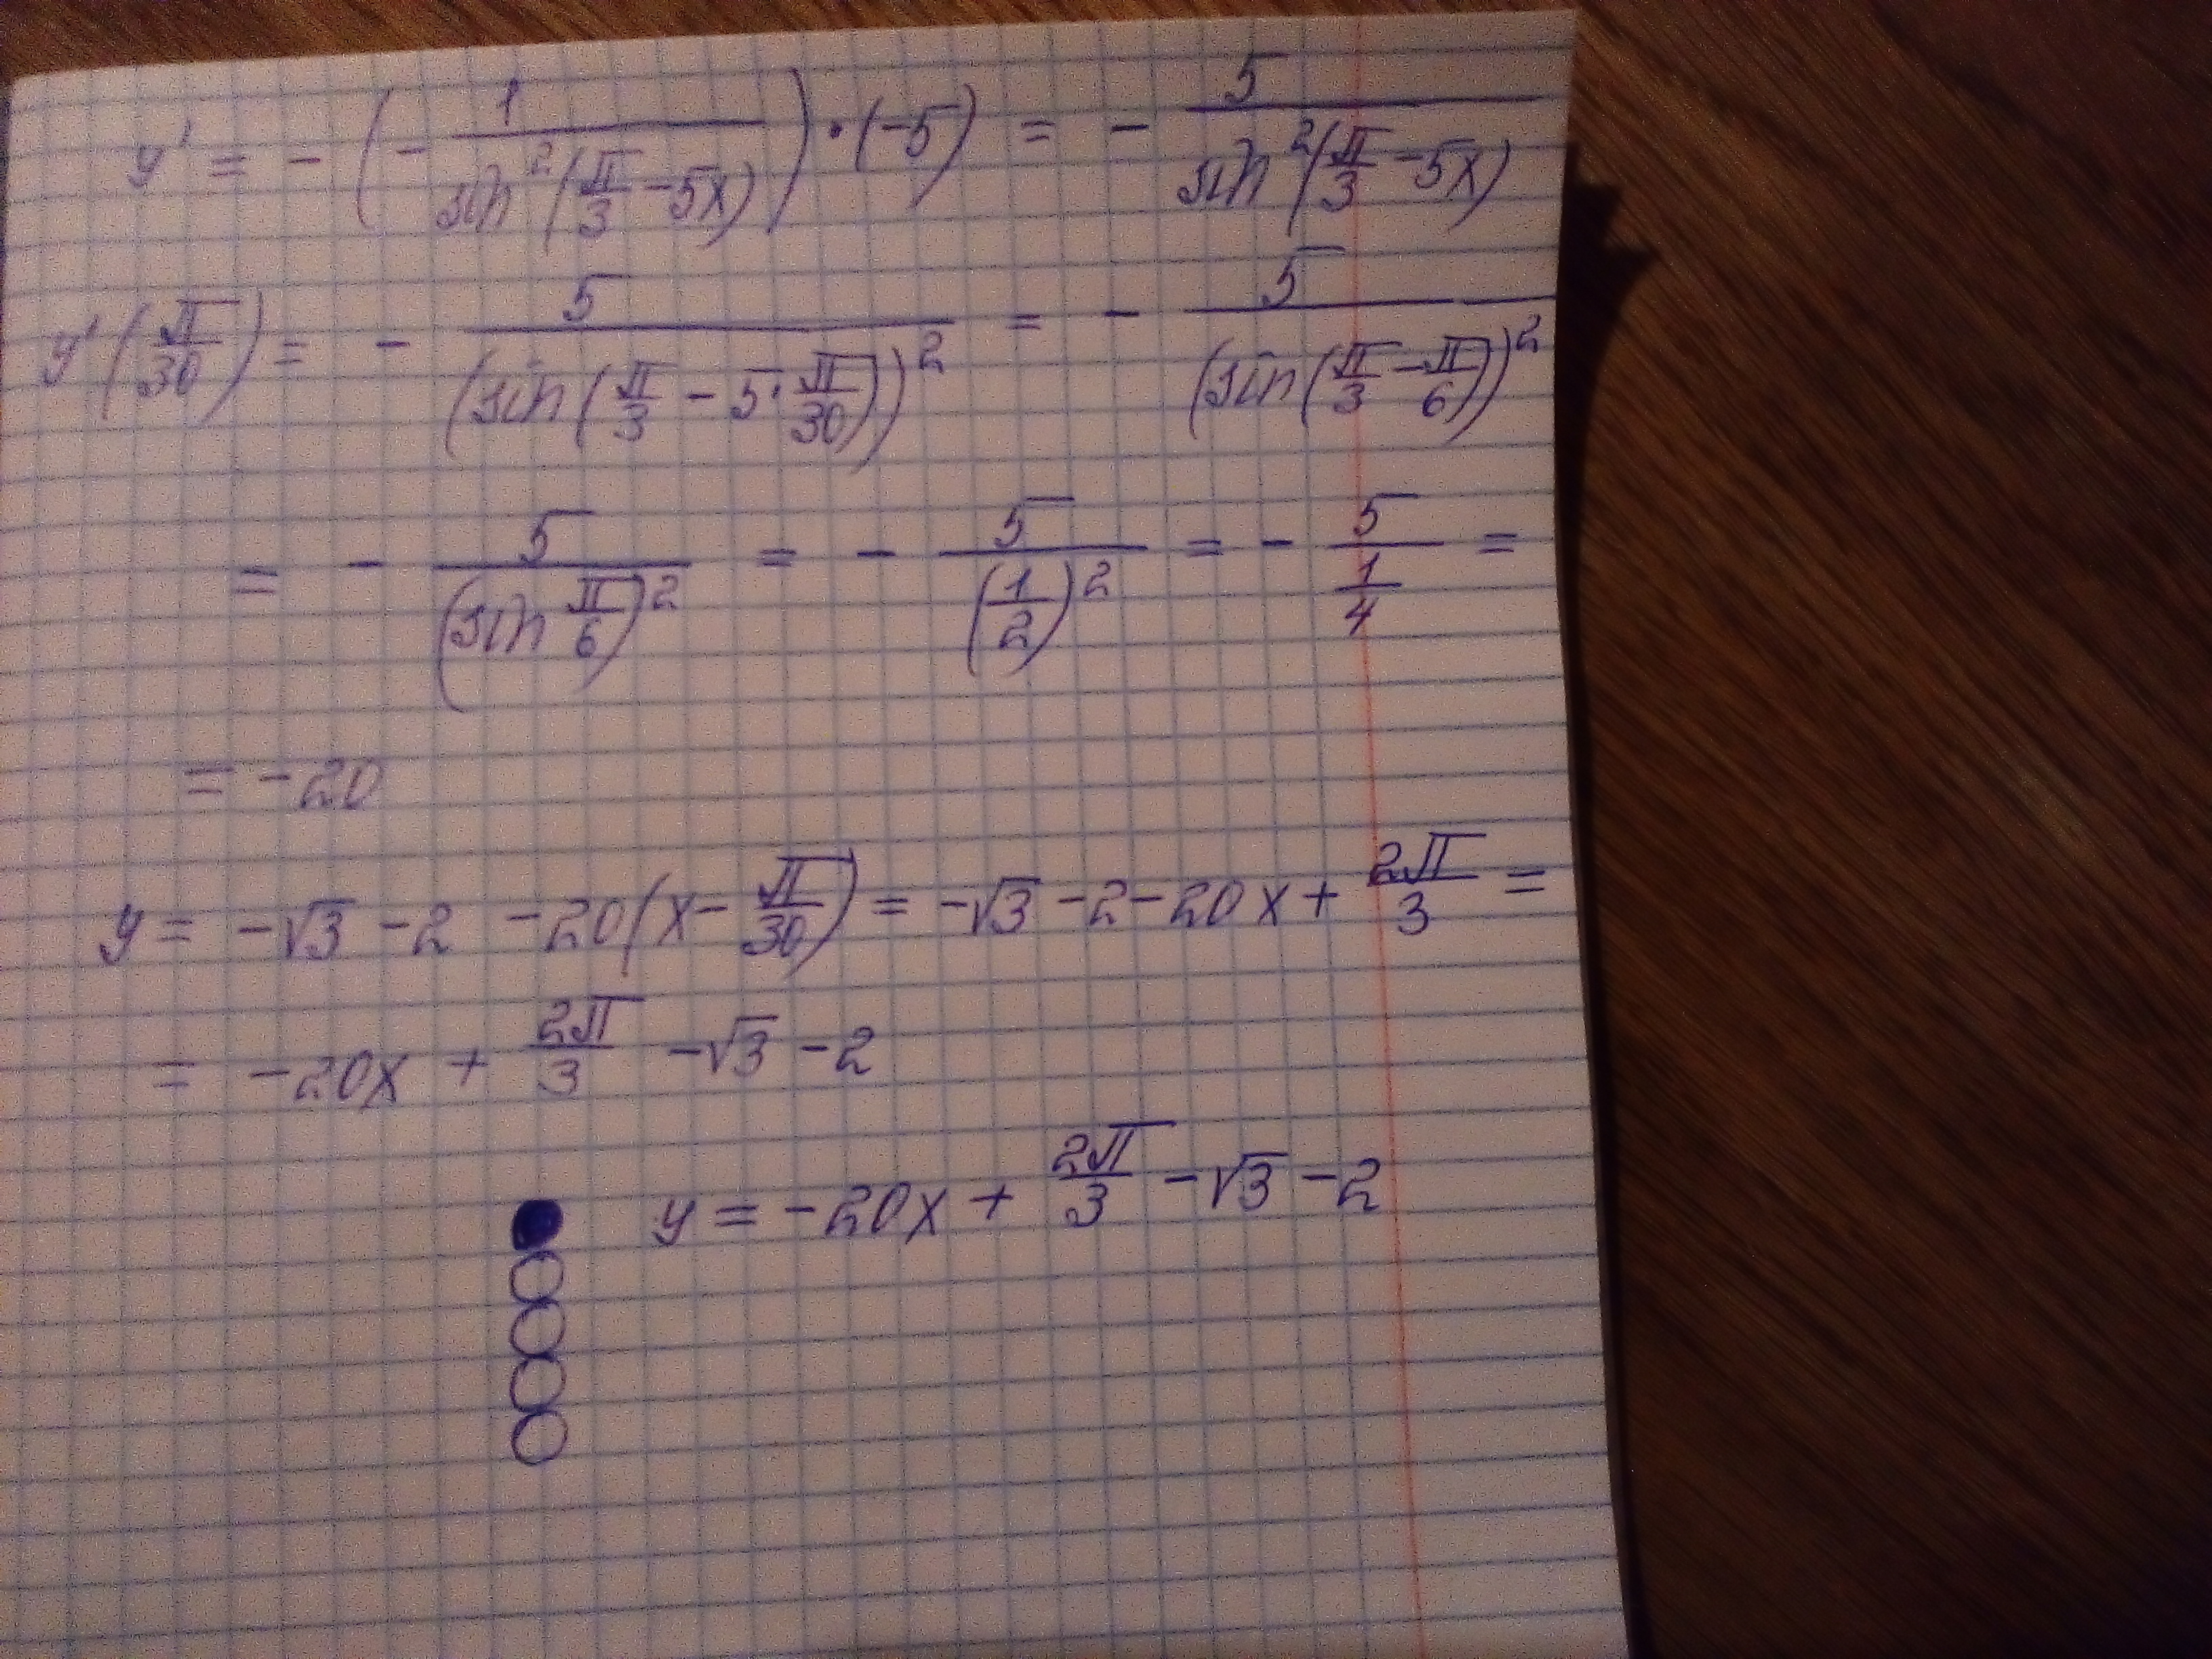 y' = - (- 1/sin²(π/3 - 5x)) · (-5) = - 5/sin²(π/3 - 5x)
y'(π/30) = - 5/(sin(π/3 - 5·π/30))² = - 5/(sin(π/3 - π/6))²
= - 5/(sin π/6)² = - 5/(1/2)² = - 5/(1/4) =
= -20
y = -√3 - 2 - 20(x - π/30) = -√3 - 2 - 20x + 2π/3 =
= -20x + 2π/3 - √3 - 2
y = -20x + 2π/3 - √3 - 2